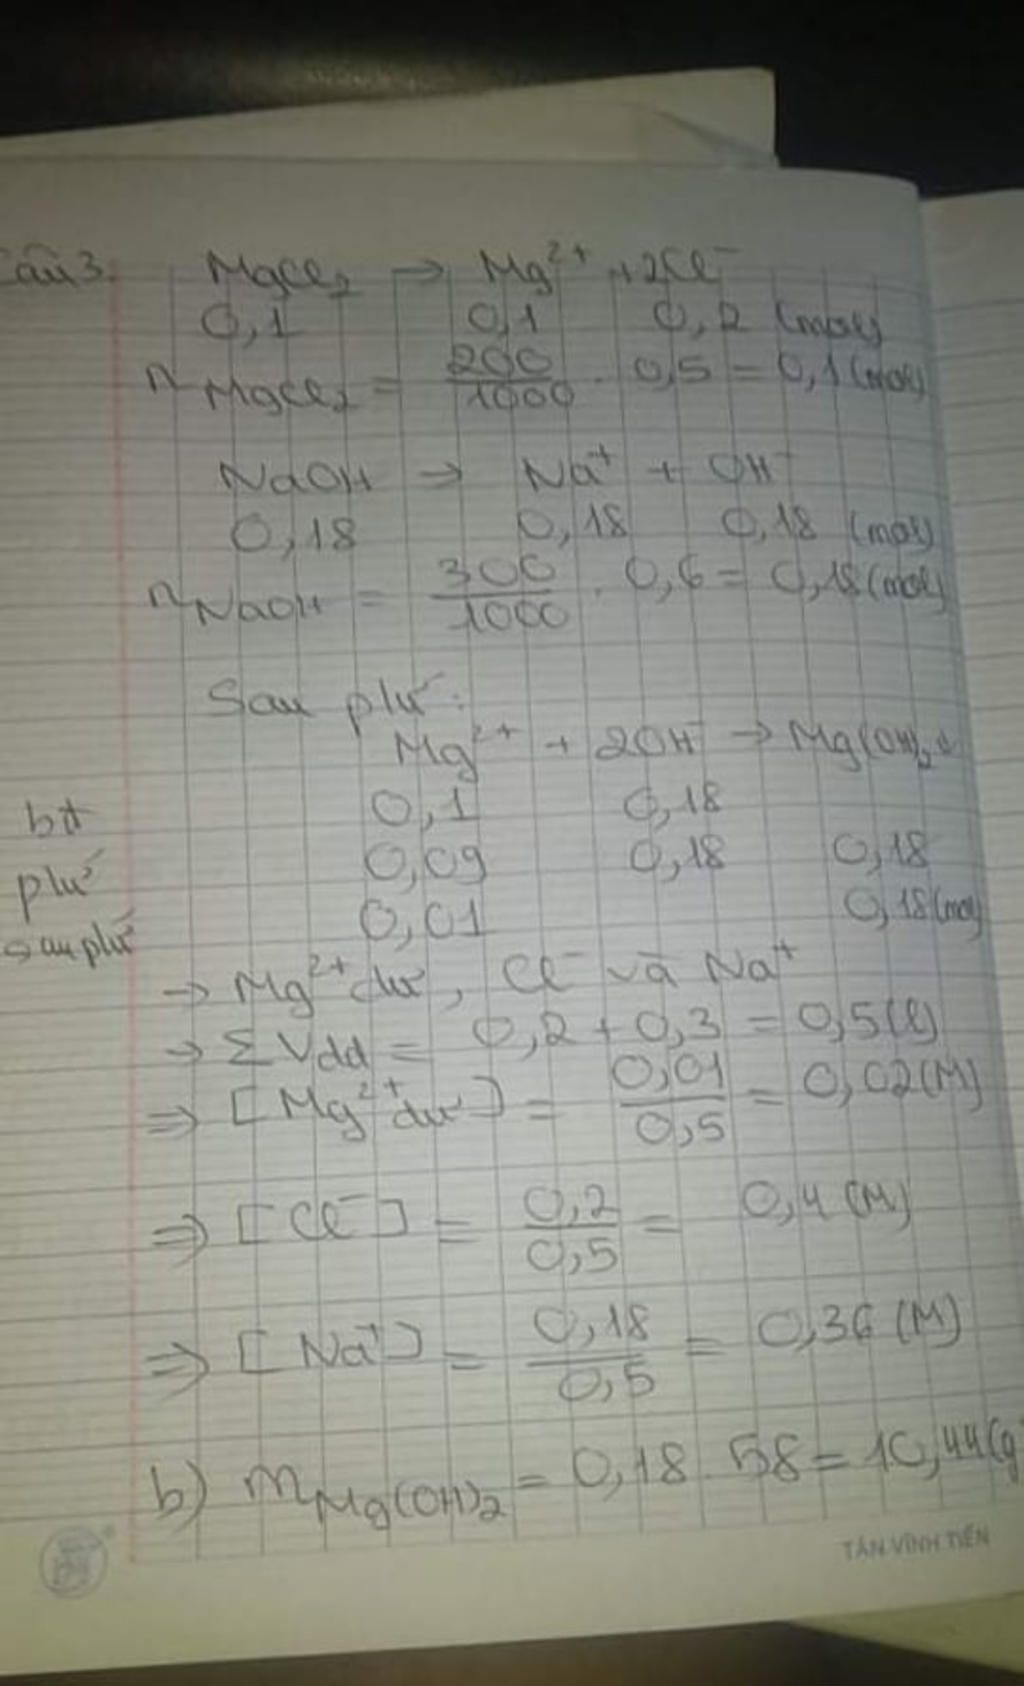 Câu 3. MgCl₂ → Mg²⁺ + 2Cl⁻
0,1 0,1 0,2 (mol)
n MgCl₂ = 200/1000 . 0,5 = 0,1 (mol)
NaOH → Na⁺ + OH⁻
0,18 0,18 0,18 (mol)
n NaOH = 300/1000 . 0,6 = 0,18 (mol)
Sau pứ:
Mg²⁺ + 2OH⁻ → Mg(OH)₂↓
bđ 0,1 0,18
pứ 0,09 0,18 0,18
sau pứ 0,01 0,18 (mol)
→ Mg²⁺ dư, Cl⁻ và Na⁺
→ ΣVdd = 0,2 + 0,3 = 0,5 (l)
⇒ [Mg²⁺ dư] = 0,01/0,5 = 0,02 (M)
⇒ [Cl⁻] = 0,2/0,5 = 0,4 (M)
⇒ [Na⁺] = 0,18/0,5 = 0,36 (M)
b) m Mg(OH)₂ = 0,18 . 58 = 10,44 (g
TÂN VĨNH TIẾN